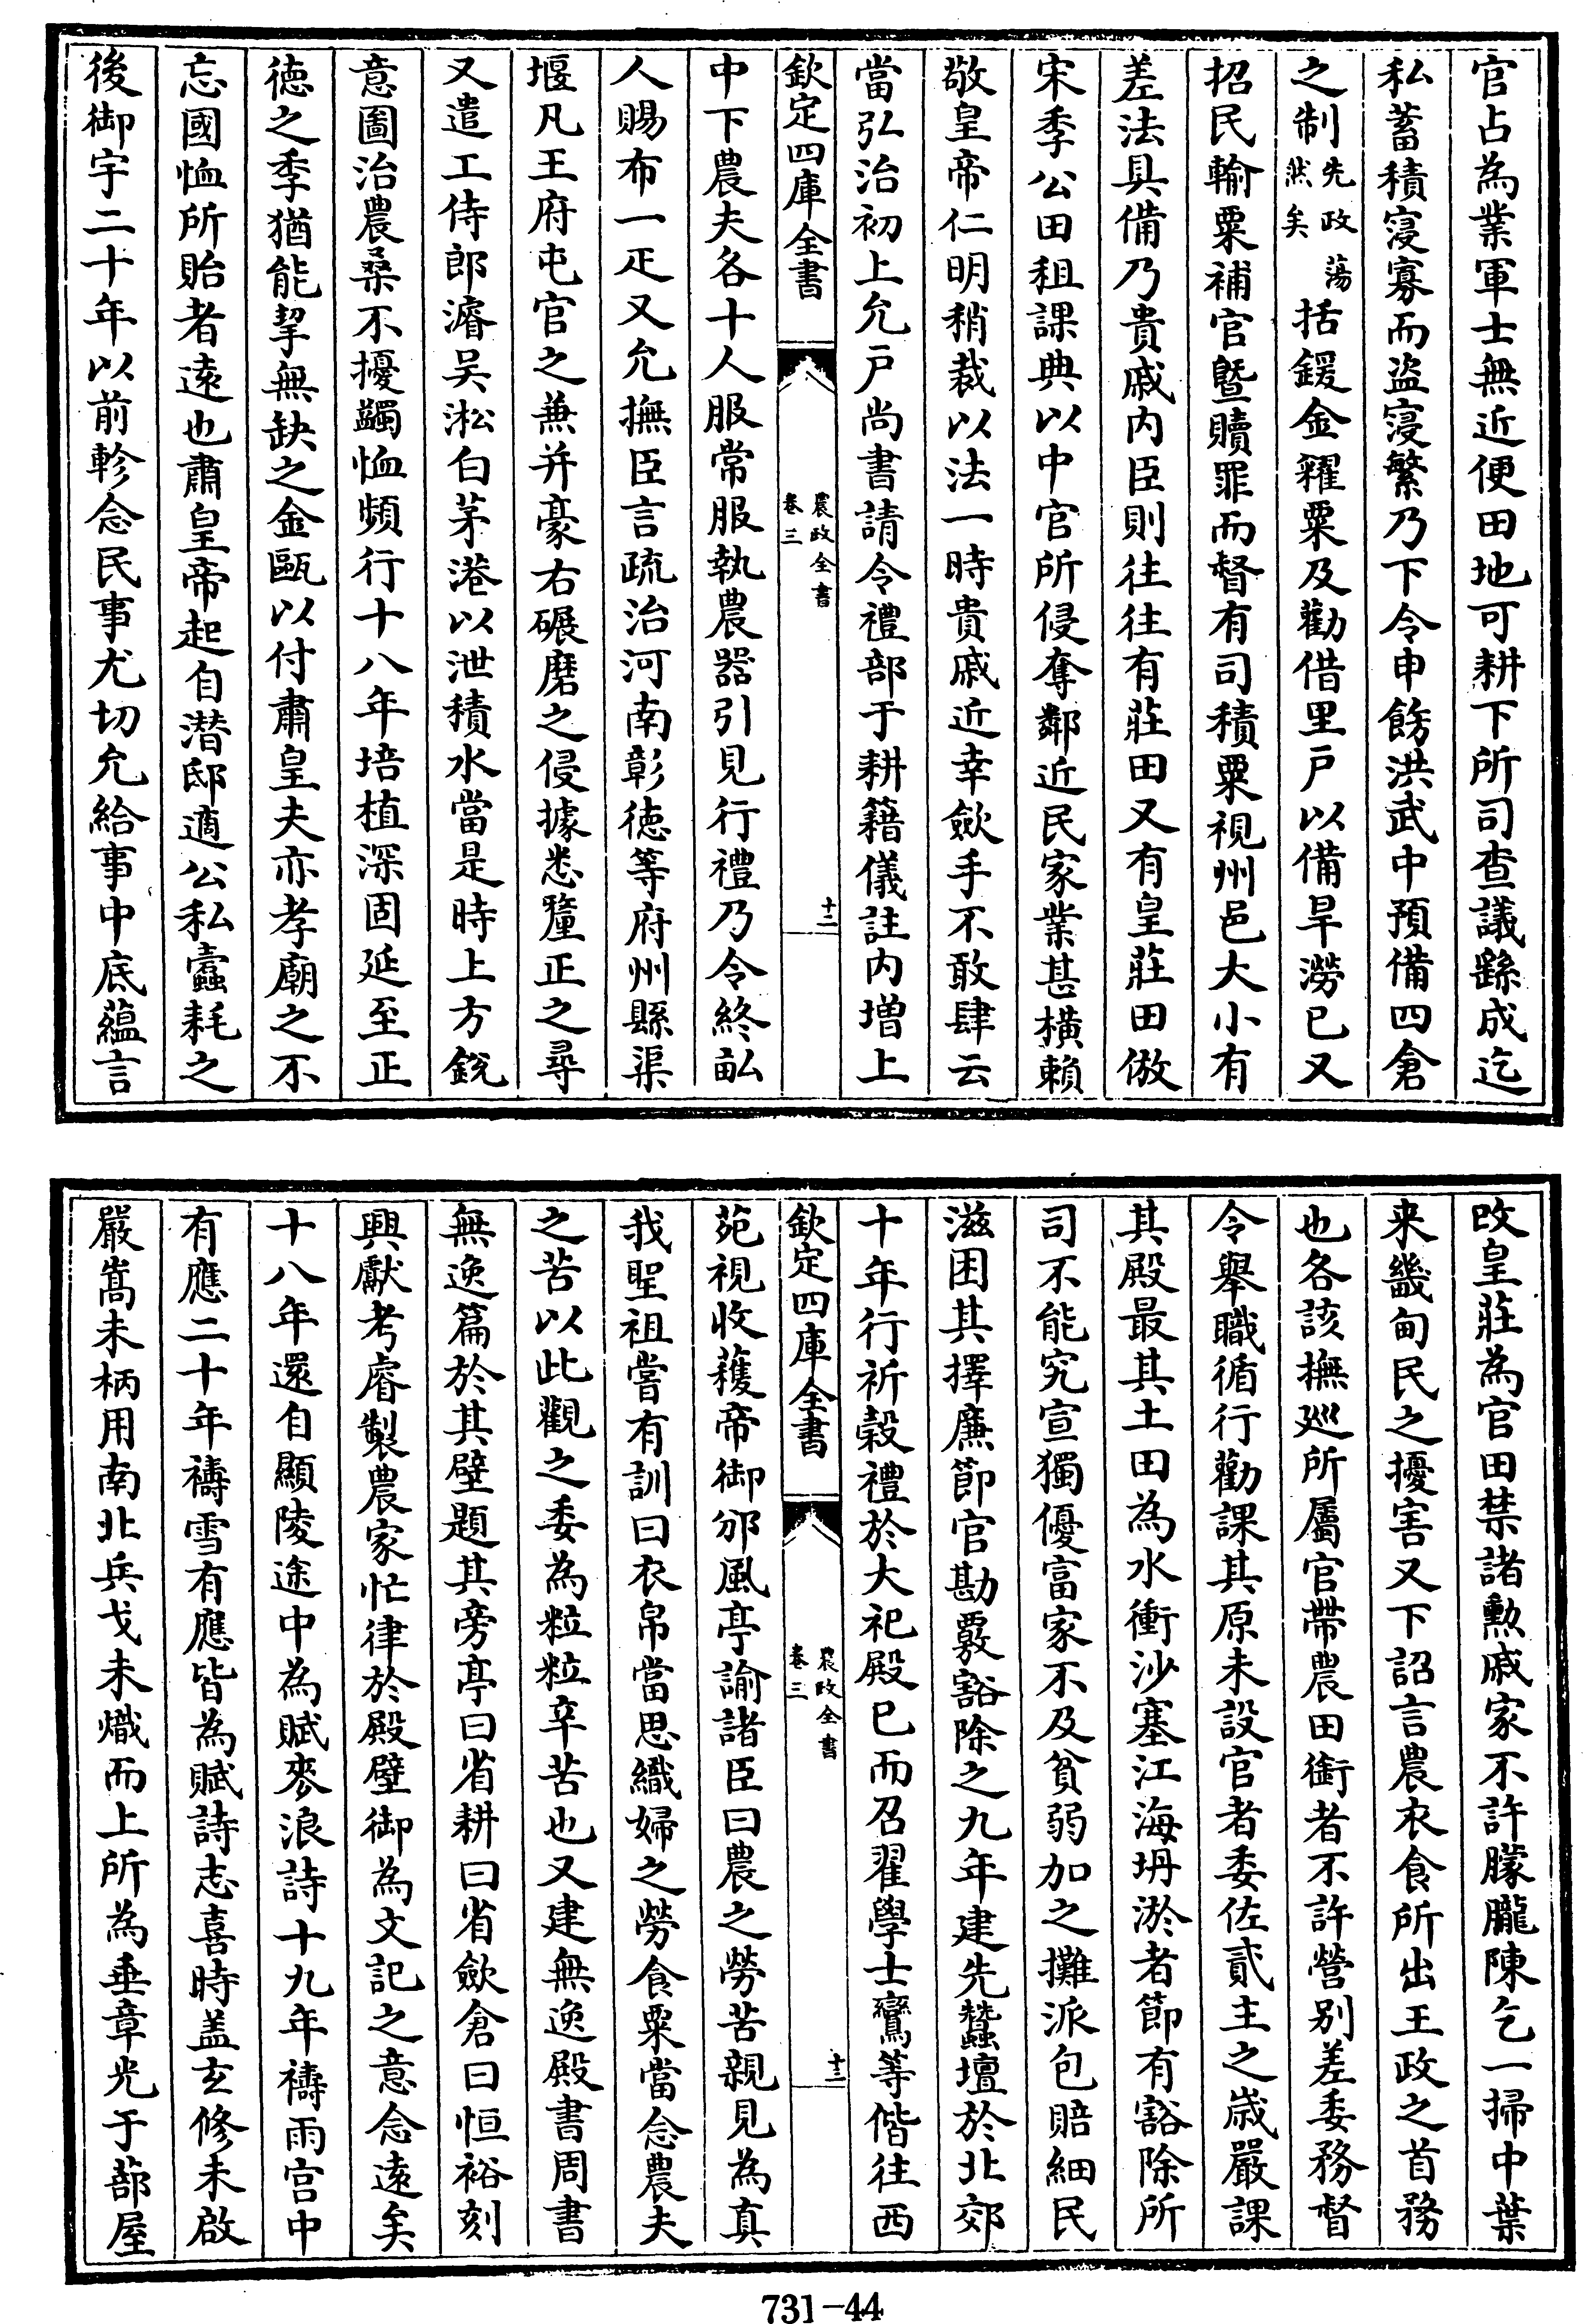 官占為業軍士無近便田地可耕下所司查議繇成迄
私蓄積寖寡而盜寖繁乃下令申飭洪武中預備四倉
之制先政蕩然矣括鍰金糴粟及勸借里戸以備旱澇已又
招民輸粟補官暨贖罪而督有司積粟視州邑大小有
差法具備乃貴戚内臣則往往有莊田又有皇莊田倣
宋季公田租課典以中官所侵奪鄰近民家業甚横賴
敬皇帝仁明稍裁以法一時貴戚近幸歛手不敢肆云
當弘治初上允戸尚書請令禮部于耕籍儀註内増上
欽定四庫全書
農政全書
卷三
十二
中下農夫各十人服常服執農器引見行禮乃令終畝
人賜布一疋又允撫臣言疏治河南彰徳等府州縣渠
堰凡王府屯官之兼并豪右碾磨之侵據悉釐正之尋
又遣工侍郎濬吴淞白茅港以泄積水當是時上方銳
意圖治農桑不擾蠲恤頻行十八年培植深固延至正
徳之季猶能挈無缺之金甌以付肅皇夫亦孝廟之不
忘國恤所貽者逺也肅皇帝起自潛邸適公私蠧耗之
後御宇二十年以前軫念民事尤切允給事中底蘊言
改皇莊為官田禁諸勲戚家不許朦朧陳乞一掃中葉
来畿甸民之擾害又下詔言農衣食所出王政之首務
也各該撫廵所屬官帶農田銜者不許營别差委務督
令舉職循行勸課其原未設官者委佐貳主之嵗嚴課
其殿最其土田為水衝沙塞江海坍淤者節有豁除所
司不能究宣獨優富家不及貧弱加之攤派包賠細民
滋困其擇廉節官勘覈豁除之九年建先蠶壇於北郊
十年行祈榖禮於大祀殿已而召翟學士鸞等偕往西
欽定四庫全書
農政全書
卷三
十三
苑視收穫帝御邠風亭諭諸臣曰農之勞苦親見為真
我聖祖嘗有訓曰衣帛當思織婦之勞食粟當念農夫
之苦以此觀之委為粒粒辛苦也又建無逸殿書周書
無逸篇於其壁題其旁亭曰省耕曰省歛倉曰恒裕刻
興獻考睿製農家忙律於殿壁御為文記之意念逺矣
十八年還自顯陵途中為賦麥浪詩十九年禱雨宫中
有應二十年禱雪有應皆為賦詩志喜時盖玄修未啟
嚴嵩未柄用南北兵戈未熾而上所為垂章光于蔀屋
731-44